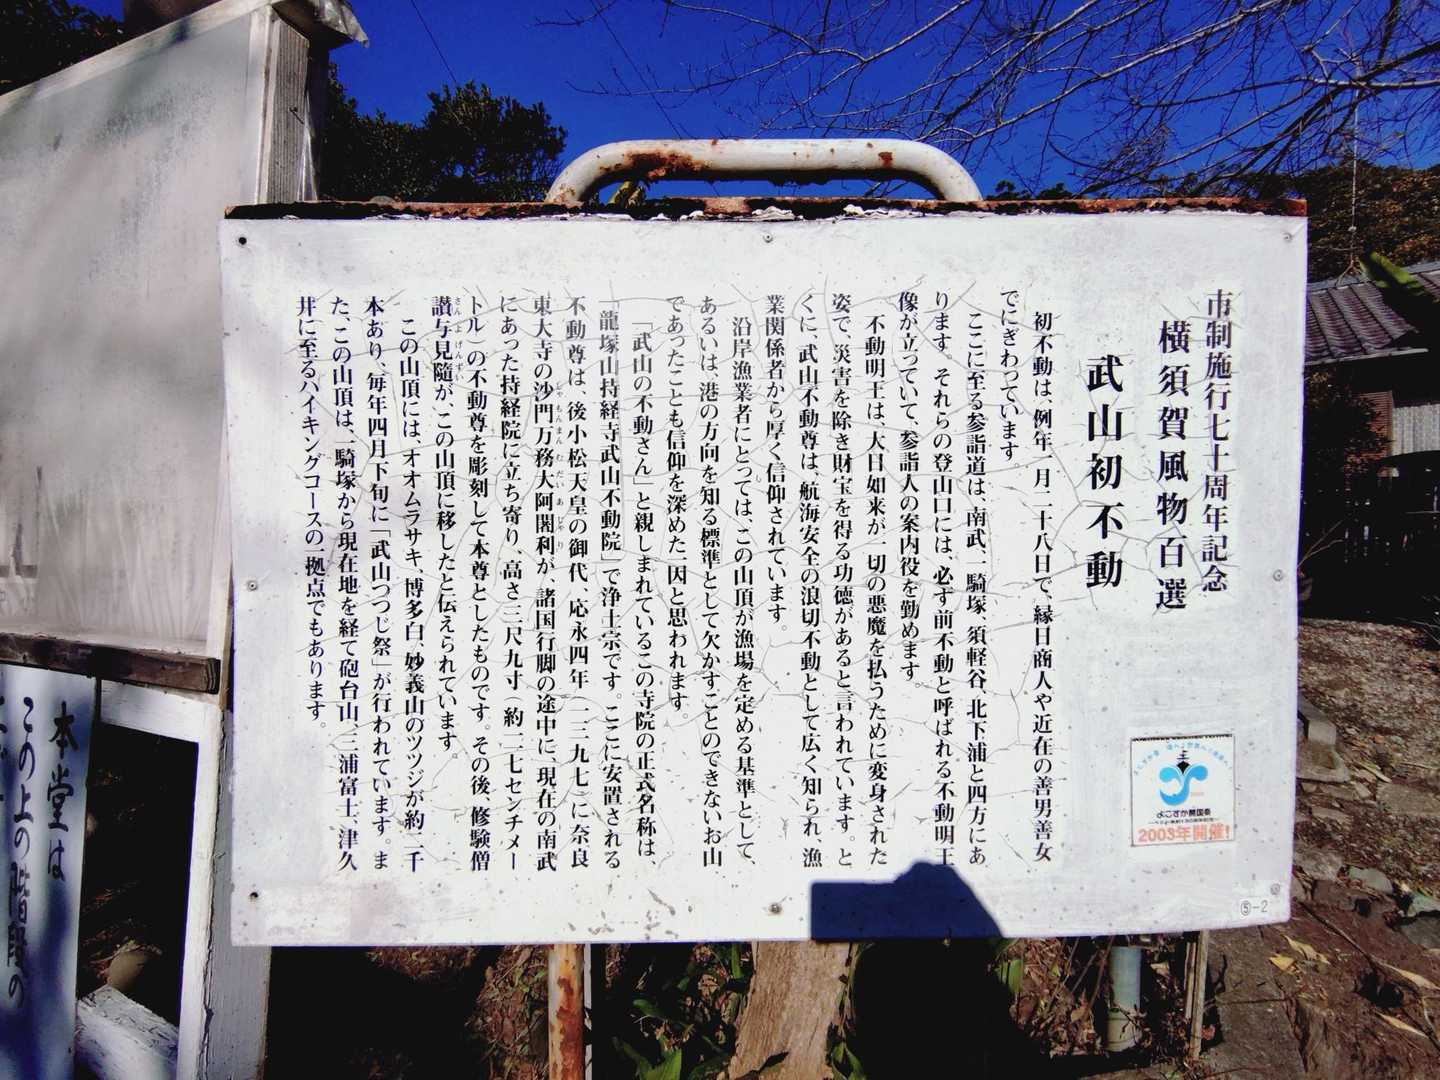 市制施行七十周年記念
横須賀風物百選
武山初不動
初不動は、例年一月二十八日で、縁日商人や近在の善男善女
でにぎわっています。
ここに至る参詣道は、南武、一騎塚、須軽谷、北下浦と四方にあ
ります。それらの登山口には、必ず前不動と呼ばれる不動明王
像が立っていて、参詣人の案内役を勤めます。
不動明王は、大日如来が一切の悪魔を払うために変身された
姿で、災害を除き財宝を得る功徳があると言われています。と
くに、武山不動尊は、航海安全の浪切不動として広く知られ、漁
業関係者から厚く信仰されています。
沿岸漁業者にとっては、この山頂が漁場を定める基準として、
あるいは、港の方向を知る標準として欠かすことのできないお山
であったことも信仰を深めた一因と思われます。
「武山の不動さん」と親しまれているこの寺院の正式名称は、
「龍塚山持経寺武山不動院」で浄土宗です。ここに安置される
不動尊は、後小松天皇の御代、応永四年(一三九七)に奈良
東大寺の沙門万務大阿闍利が、諸国行脚の途中に、現在の南武
にあった持経院に立ち寄り、高さ三尺九寸(約一二七センチメー
トル)の不動尊を彫刻して本尊としたものです。その後、修験僧
讃与見隨が、この山頂に移したと伝えられています。
この山頂には、オオムラサキ、博多白、妙義山のツツジが約二千
本あり、毎年四月下旬に「武山つつじ祭」が行われています。ま
た、この山頂は、一騎塚から現在地を経て砲台山、三浦富士、津久
井に至るハイキングコースの一拠点でもあります。
よこすか開国祭
2003年開催!
⑤-2
本堂は
この上の階段の